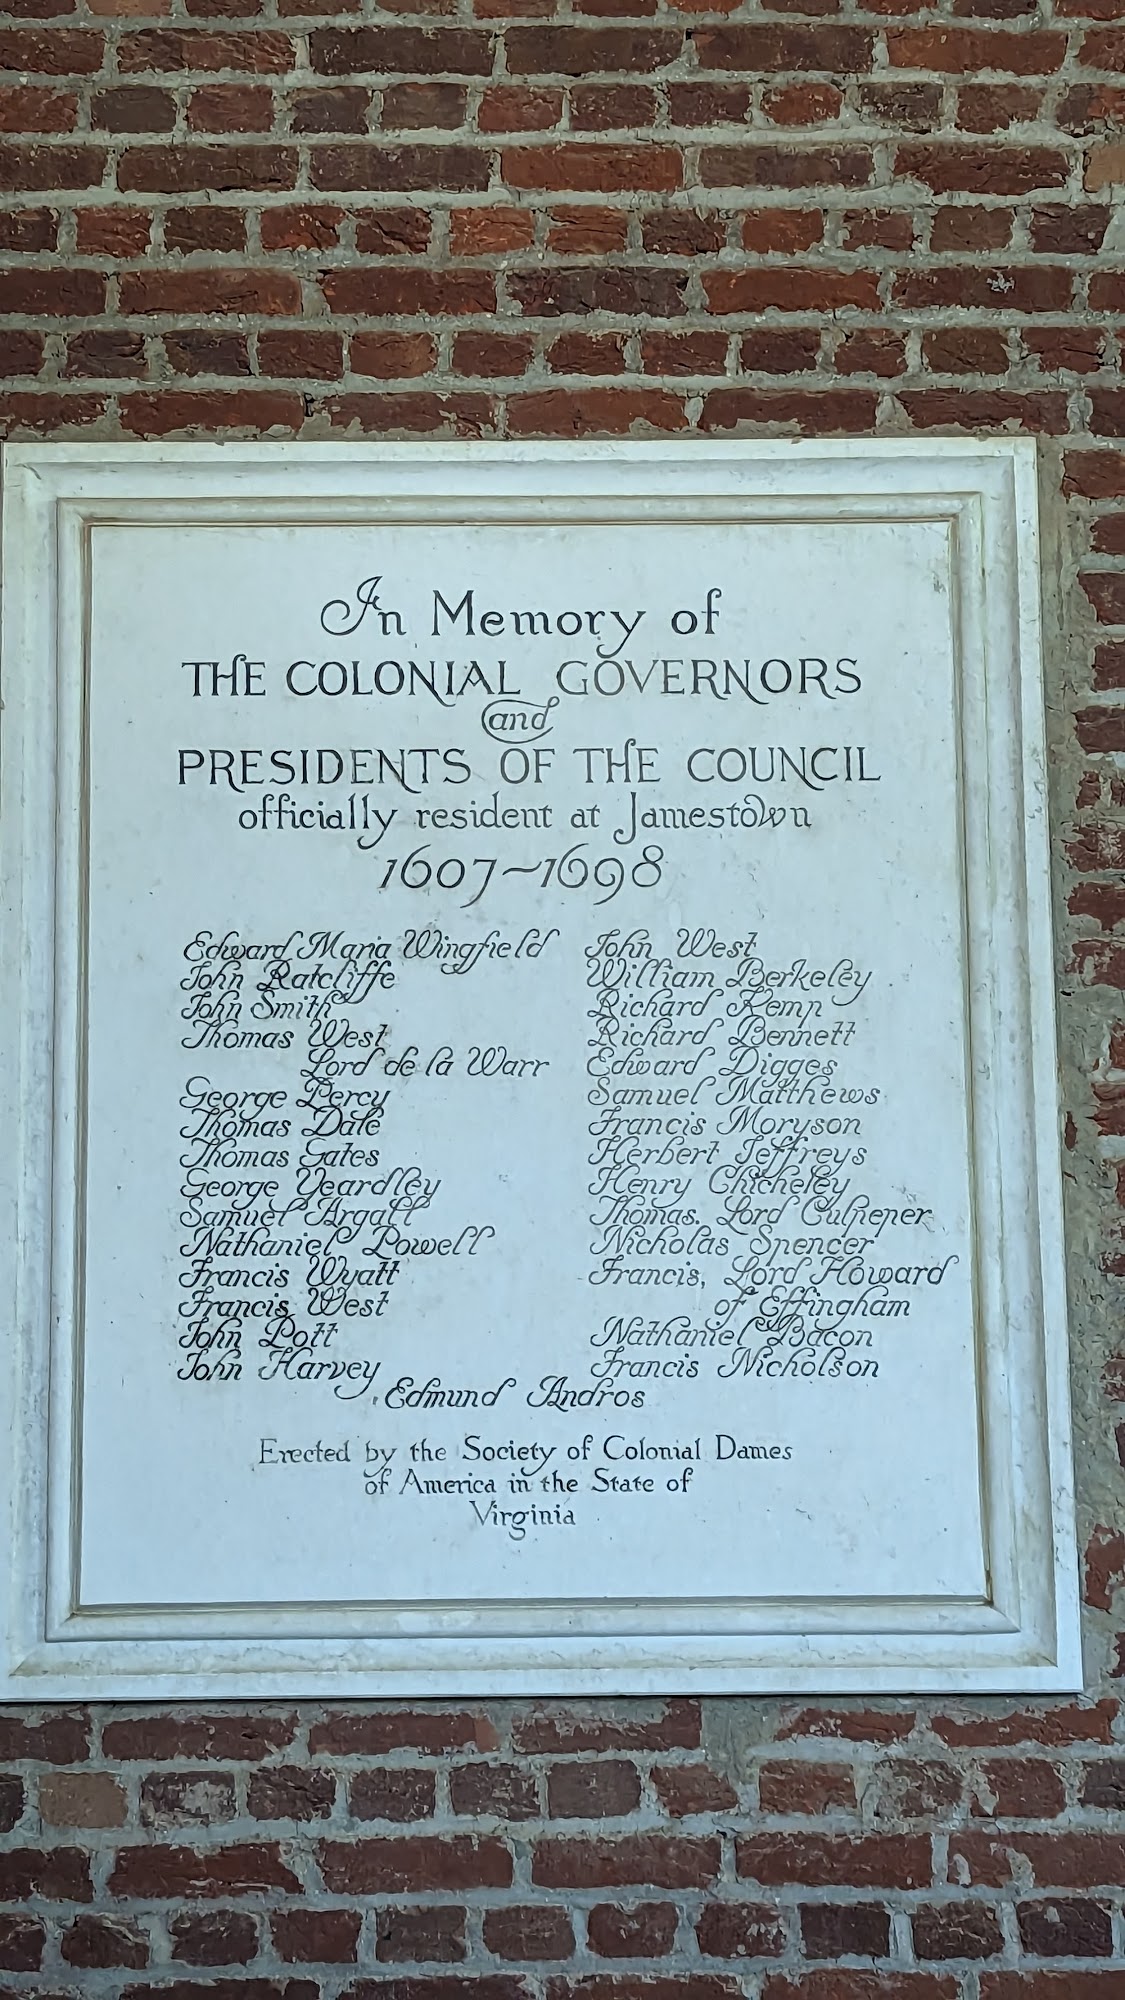 In Memory of
THE COLONIAL GOVERNORS
and
PRESIDENTS OF THE COUNCIL
officially resident at Jamestown
1607~1698
Edward Maria Wingfield
John Ratcliffe
John Smith
Thomas West
Lord de la Warr
George Percy
Thomas Dale
Thomas Gates
George Yeardley
Samuel Argall
Nathaniel Powell
Francis Wyatt
Francis West
John Pott
John Harvey
John West
William Berkeley
Richard Kemp
Richard Bennett
Edward Digges
Samuel Matthews
Francis Moryson
Herbert Jeffreys
Henry Chicheley
Thomas. Lord Culpeper
Nicholas Spencer
Francis, Lord Howard
of Effingham
Nathaniel Bacon
Francis Nicholson
Edmund Andros
Erected by the Society of Colonial Dames
of America in the State of
Virginia